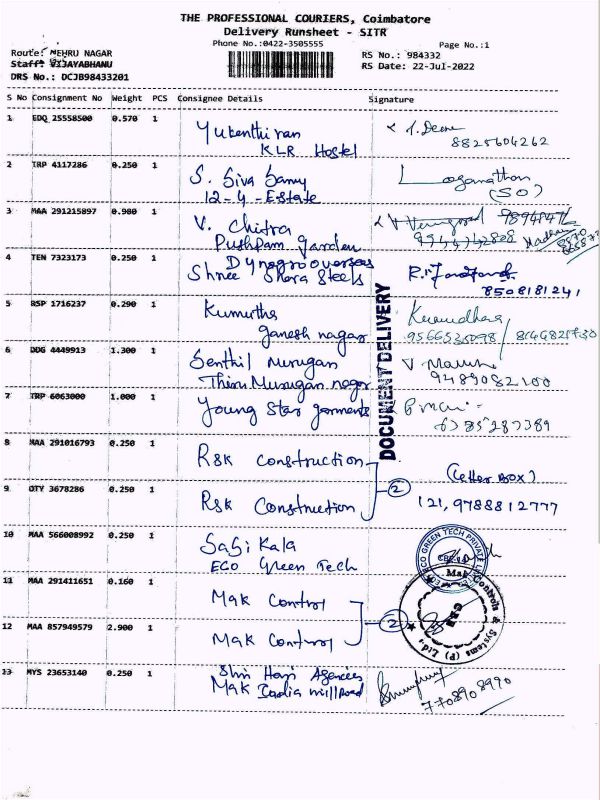 THE PROFESSIONAL COURIERS, Coimbatore
Delivery Runsheet - SITR
Phone No.:0422-3505555
Page No.:1
Route: NEHRU NAGAR
RS No.: 984332
Staff: VIJAYABHANU
RS Date: 22-Jul-2022
DRS No.: DCJB98433201
S No Consignment No Weight PCS Consignee Details Signature
1 EDQ 25558500 0.570 1
Yukenthiran
KLR Hostel
8825604262
2 TRP 4117286 0.250 1
S. Siva Samy
12-4-Estate
Loganathan
(SO)
3 MAA 291215897 0.980 1
V. Chitra
Pushpam Garden
9944742808
4 TEN 7323173 0.250 1
Dynagro overseas
Shree Shara Steels
8508181241
5 RSP 1716237 0.290 1
Kumutha
ganesh nagar
6 DDG 4449913 1.300 1
Senthil Murugan
Thiru Murugan nagar
9489082100
7 TRP 6063000 1.000 1
Young Star garments
6385287389
DOCUMENT DELIVERY
8 MAA 291016793 0.250 1
RSK Construction
(Letter Box)
2
9 OTY 3678286 0.250 1
RSK Construction
121, 9788812777
10 MAA 566008992 0.250 1
Sasi Kala
ECO Green Tech
ECO GREEN TECH PRIVATE
11 MAA 291411651 0.160 1
Mak Control
Mak Controls & Systems (P) Ltd.
2
12 MAA 857949579 2.900 1
Mak Control
13 MYS 23653140 0.250 1
Shri Hari Agencies
Mak India mill Road
7708908990